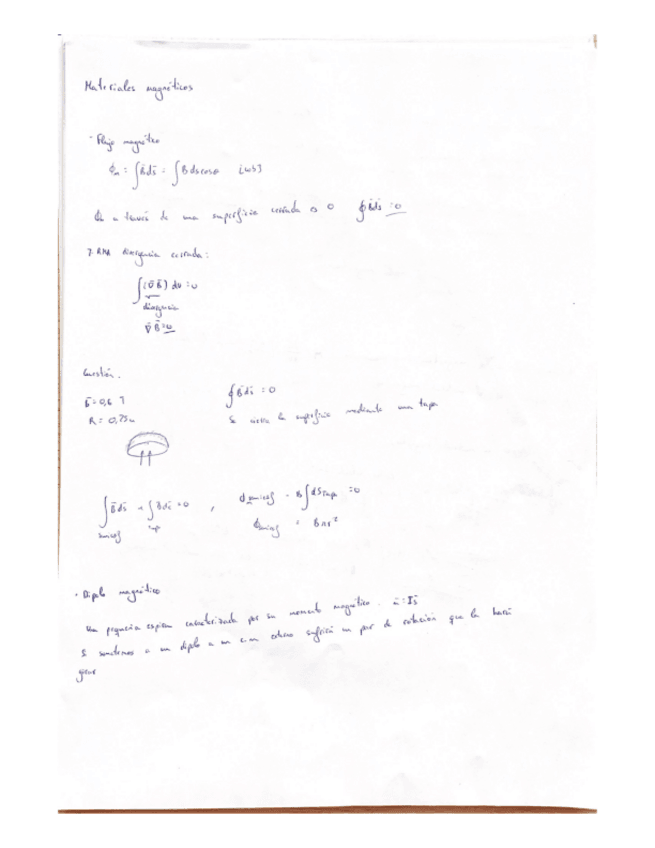 Materiales magnéticos
- Flujo magnético
ϕm = ∫B̄ds̄ = ∫B ds cosθ [wb]
a través de una superficie cerrada es 0 ∮B̄ds̄ = 0
divergencia cerrada:
∫(∇̄B̄) dv = 0
divergencia
∇̄B̄ = 0
Cuestión.
B̄ = 0,6 T
∮B̄ds̄ = 0
R = 0,75m
Se cierra la superficie mediante una tapa
∫B̄ds̄ + ∫B̄ds̄ = 0 , ϕsemiesf - B∫dStapa = 0
semiesf tapa
ϕsemiesf = Bπr²
· Dipolo magnético
Una pequeña espira caracterizada por su momento magnético. m̄ = Is̄
Si sometemos a un dipolo a un c.m externo sufrirá un par de rotación que la hará
girar